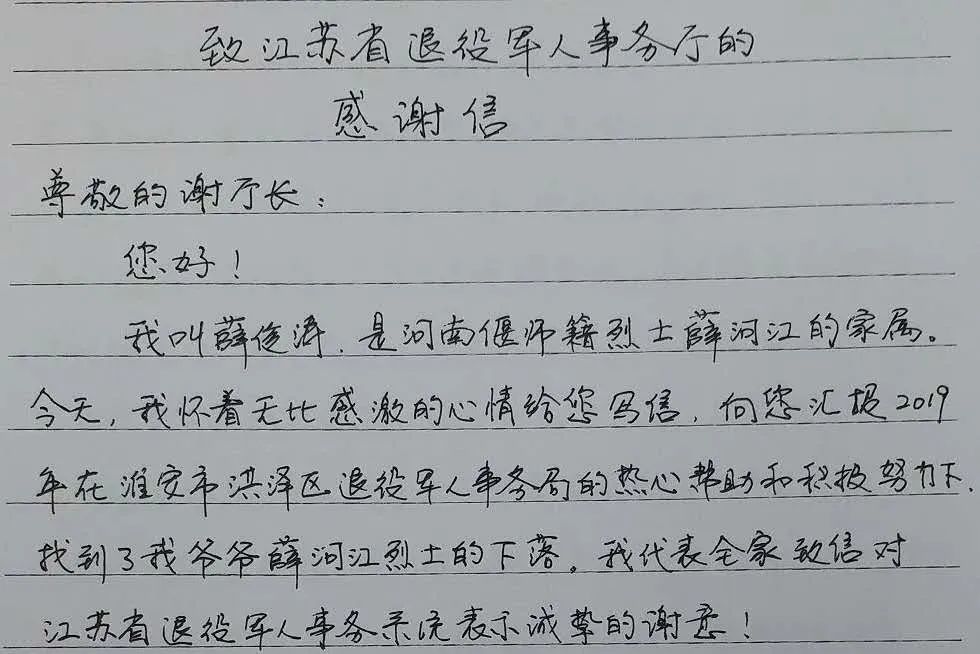 致江苏省退役军人事务厅的
感谢信
尊敬的谢厅长：
您好！
我叫薛俊涛，是河南偃师籍烈士薛河江的家属。
今天，我怀着无比感激的心情给您写信，向您汇报2019
年在淮安市洪泽区退役军人事务局的热心帮助和积极努力下，
找到了我爷爷薛河江烈士的下落。我代表全家致信对
江苏省退役军人事务系统表示诚挚的谢意！